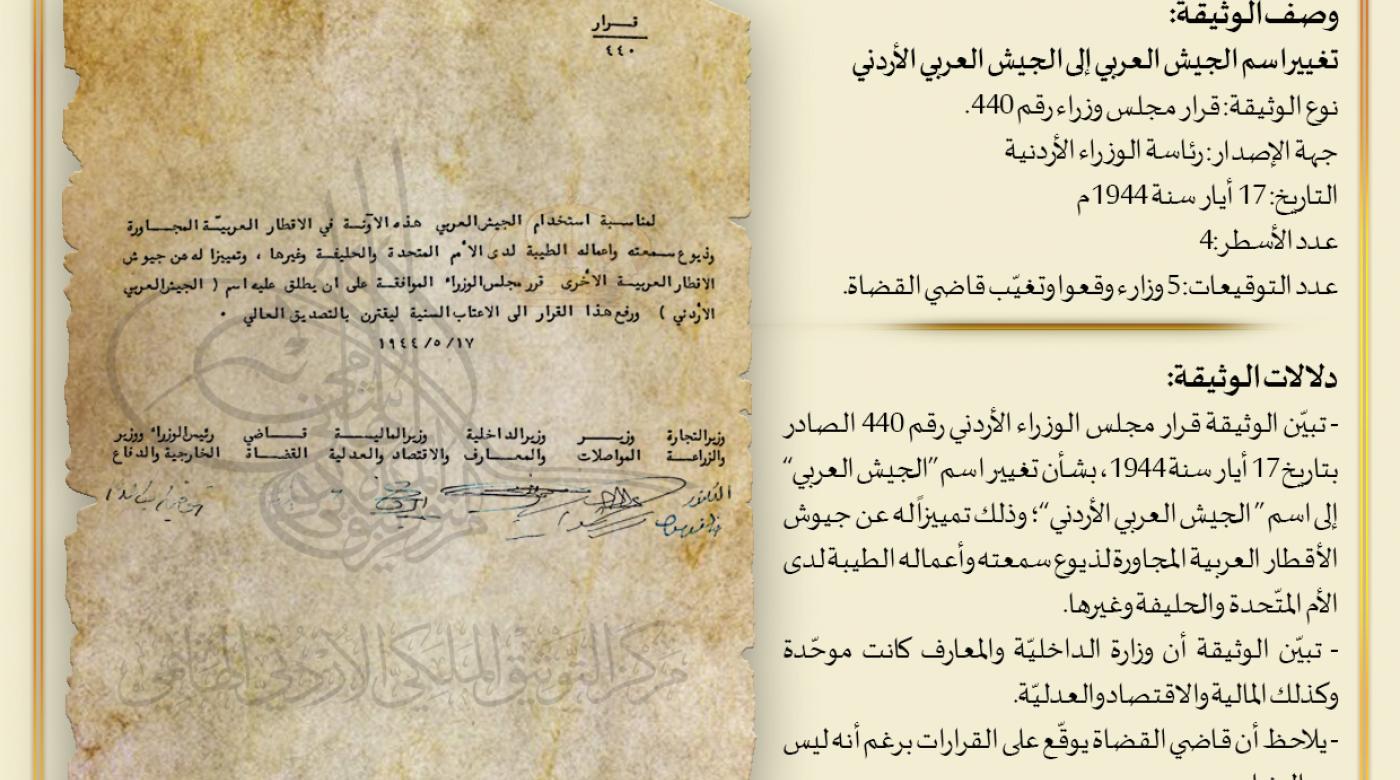 وصف الوثيقة:
تغيير اسم الجيش العربي إلى الجيش العربي الأردني
نوع الوثيقة: قرار مجلس وزراء رقم 440.
جهة الإصدار: رئاسة الوزراء الأردنية
التاريخ: 17 أيار سنة 1944م
عدد الأسطر: 4
عدد التوقيعات: 5 وزارء وقعوا وتغيّب قاضي القضاة.
دلالات الوثيقة:
- تبيّن الوثيقة قرار مجلس الوزراء الأردني رقم 440 الصادر
بتاريخ 17 أيار سنة 1944، بشأن تغيير اسم "الجيش العربي"
إلى اسم "الجيش العربي الأردني"؛ وذلك تمييزاً له عن جيوش
الأقطار العربية المجاورة لذيوع سمعته وأعماله الطيبة لدى
الأم المتّحدة والحليفة وغيرها.
- تبيّن الوثيقة أن وزارة الداخليّة والمعارف كانت موحّدة
وكذلك المالية والاقتصاد والعدليّة.
- يلاحظ أن قاضي القضاة يوقّع على القرارات برغم أنه ليس
قــرار
٤٤٠
لمناسبة استخدام الجيش العربي هذه الآونة في الاقطار العربيّة المجاورة
وذيوع سمعته واعماله الطيبة لدى الأم المتحدة والحليفة وغيرها ، وتمييزا له من جيوش
الاقطار العربية الأخرى قرر مجلس الوزراء الموافقة على ان يطلق عليه اسم ( الجيش العربي
الأردني ) ورفع هذا القرار الى الاعتاب السنية ليقترن بالتصديق العالي .
١٩٤٤/٥/١٧
وزير التجارة وزيــر وزير الداخلية وزير المالية قــاضي رئيس الوزراء ووزير
والزراعة المواصلات والمعارف والاقتصاد والعدلية القضاة الخارجية والدفاع
الدكتور
مركز التوثيق الملكي الأردني الهاشمي